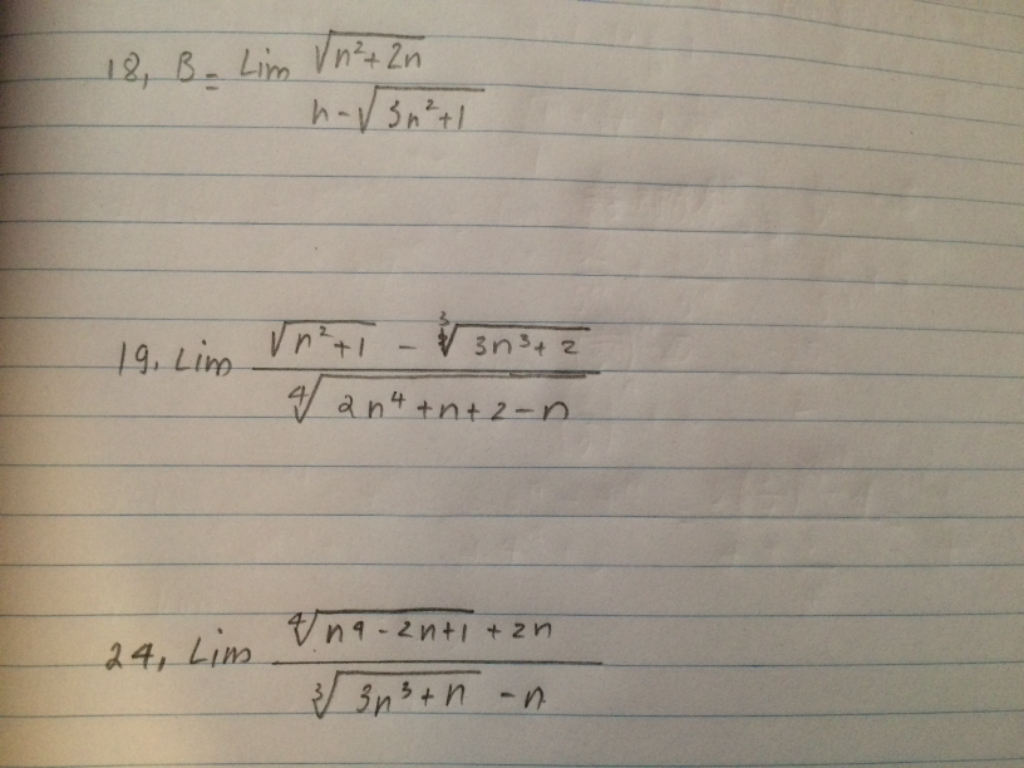 18, B = Lim √(n²+2n) / (n-√(3n²+1))
19. Lim (√(n²+1) - ∛(3n³+2)) / ∜(2n⁴+n+2-n)
24, Lim (∜(n⁴-2n+1) + 2n) / (∛(3n³+n) - n)